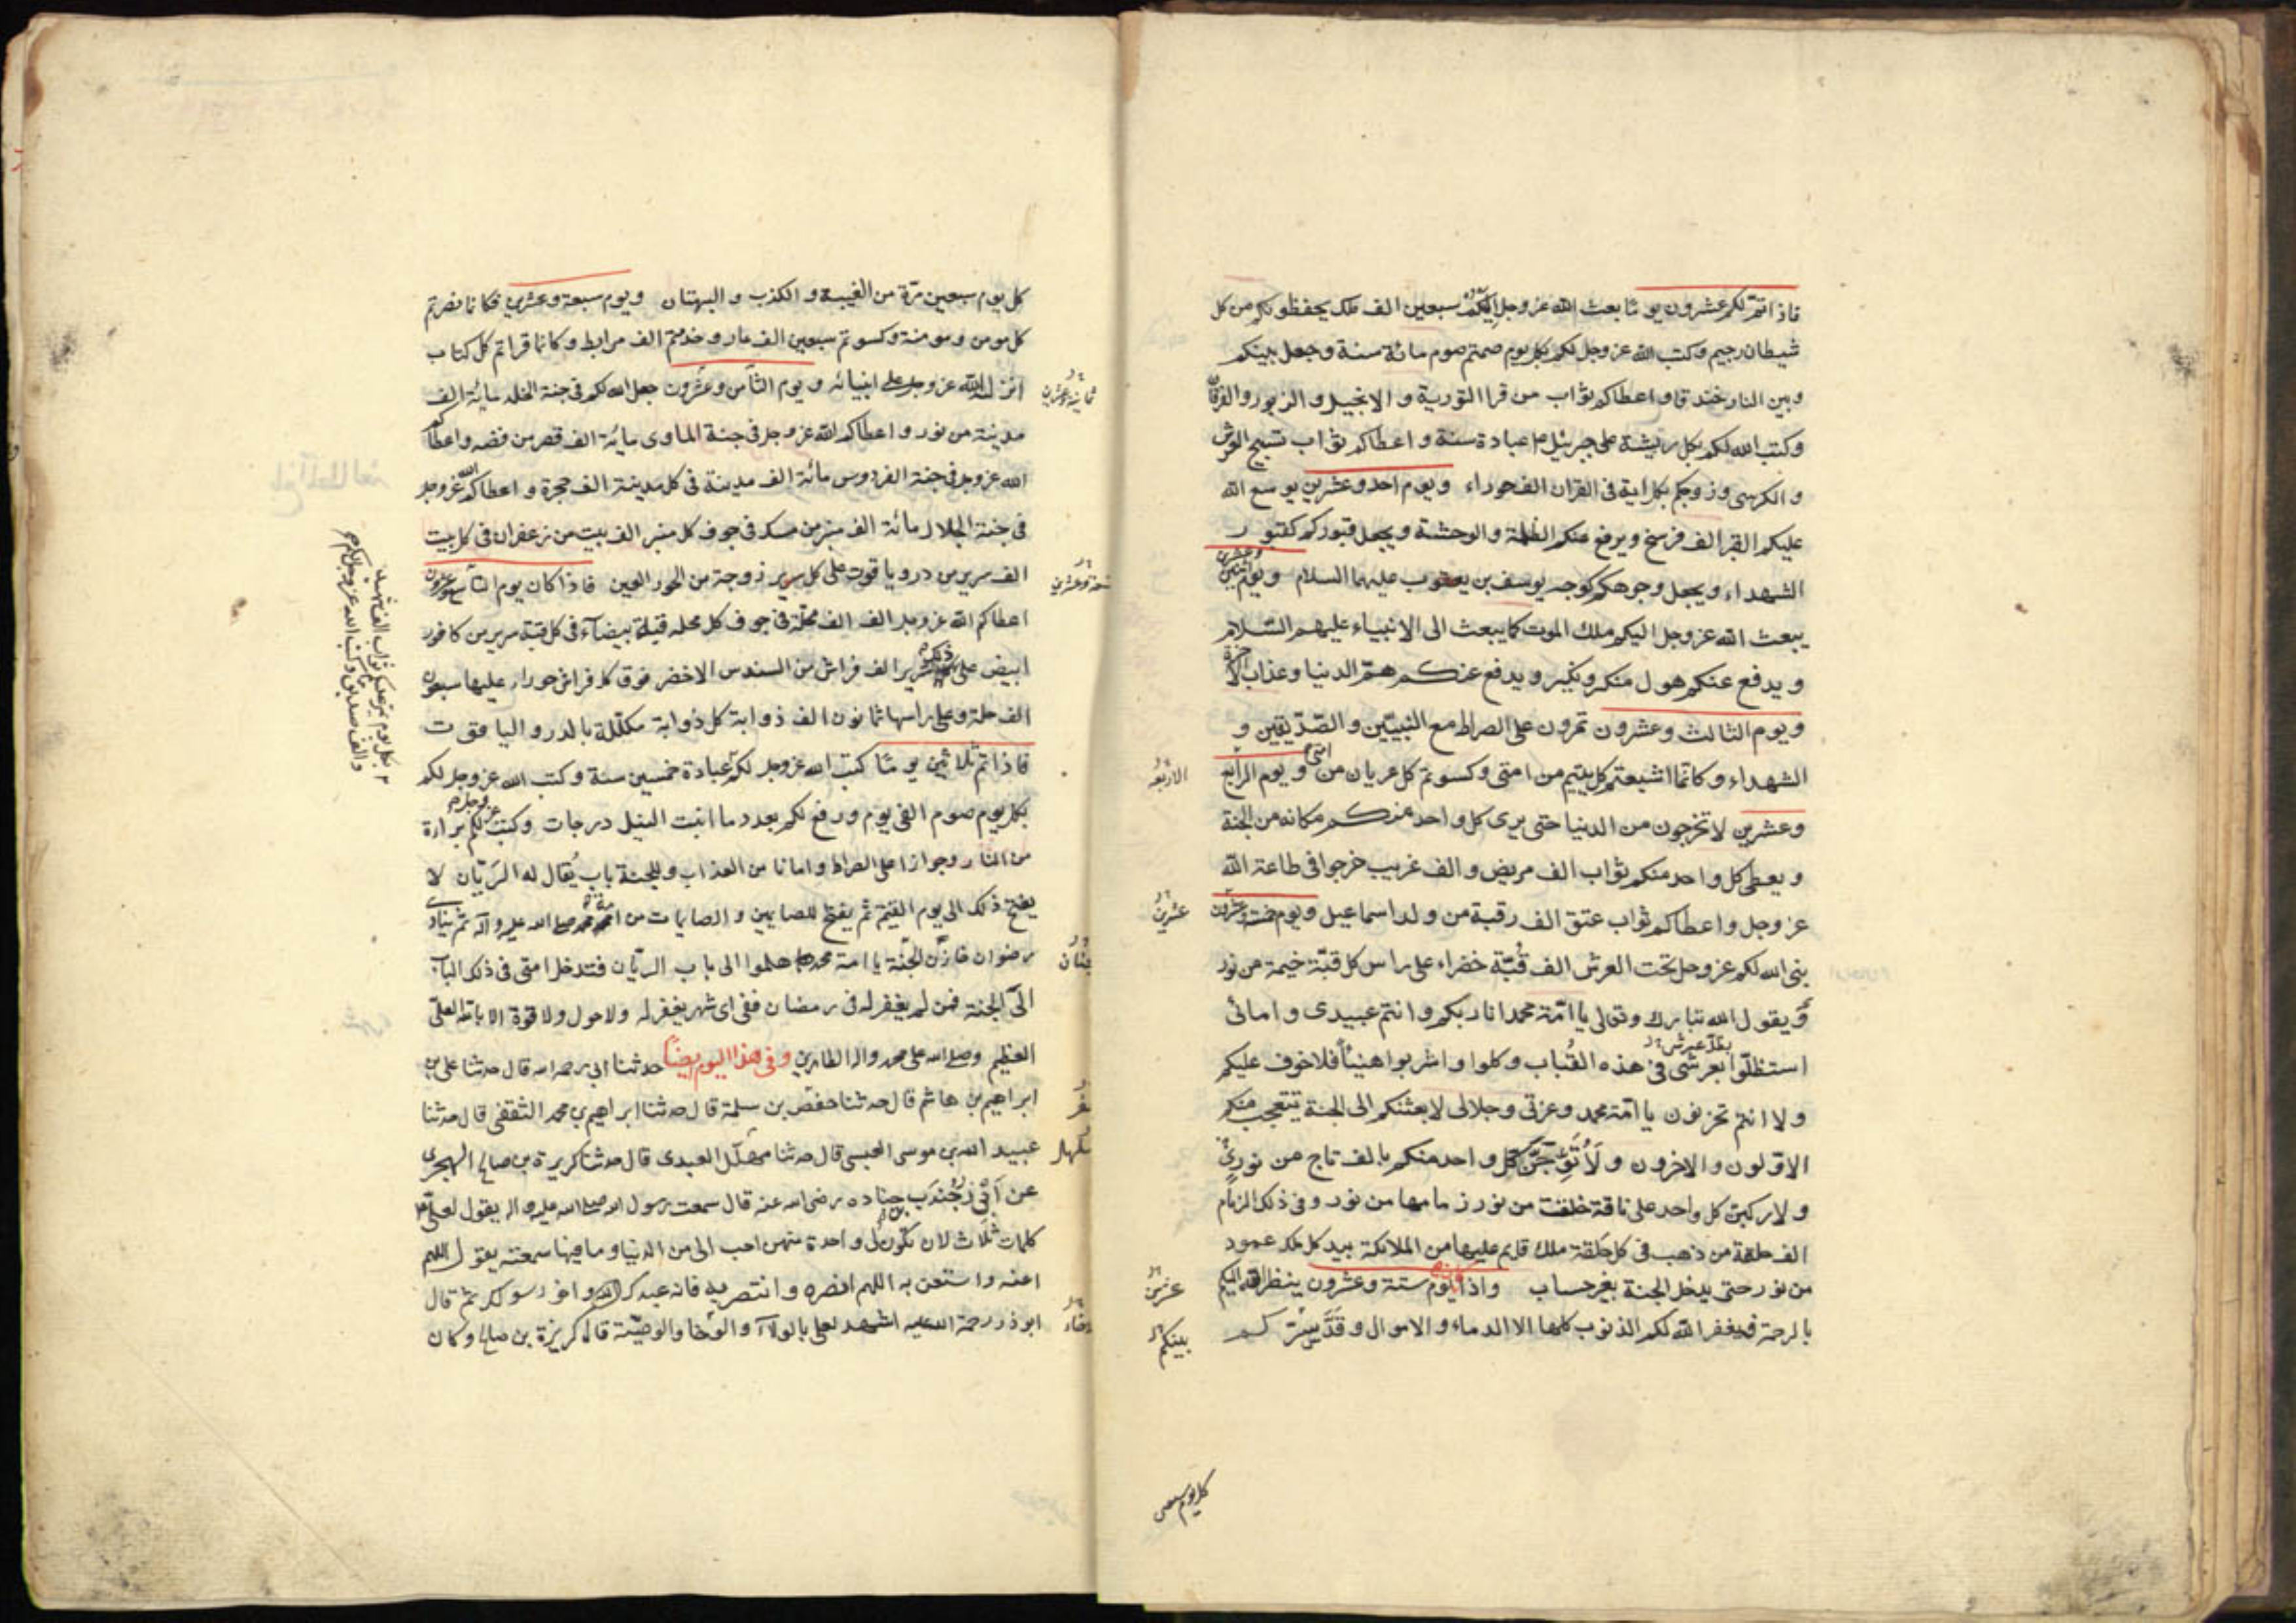 فاذا تمّ لكم عشرون يوما بعث الله عز وجل اليكم سبعين الف ملك يحفظونكم من كل
شيطان رجيم وكتب الله عز وجل لكم بكل يوم صمتم صوم مائة سنة وجعل بينكم
وبين النار خندقا واعطاكم ثواب من قرا التورية و الانجيل و الزبور والفرقان
وكتب الله لكم بكل ريشة على جبرئيل عبادة سنة و اعطاكم ثواب تسبيح العرش
و الكرسى وزوجكم بكل اية فى القران الف حوراء ويوم احد وعشرين يوسع الله
عليكم القبر الف فرسخ ويرفع عنكم الظلمة والوحشة ويجعل قبوركم كقبور
الشهداء ويجعل وجوهكم كوجه يوسف بن يعقوب عليهما السلام ويوم اثنين وعشرين
يبعث الله عز وجل اليكم ملك الموت كما يبعث الى الانبياء عليهم السّلام
ويدفع عنكم هول منكر ونكير ويدفع عنكم همّ الدنيا وعذاب الاخرة
ويوم الثالث وعشرون تمرون على الصراط مع النبيّين والصّدّيقين و
الشهداء وكانما اشبعتم كل يتيم من امتى وكسوتم كل عريان من امتى و يوم الرابع
وعشرين لا تخرجون من الدنيا حتى يرى كل واحد منكم مكانه من الجنة
ويعطى كل واحد منكم ثواب الف مريض والف غريب خرجوا فى طاعة الله
عز وجل واعطاكم ثواب عتق الف رقبة من ولد اسماعيل ويوم خمسة وعشرون
بنى الله لكم عز وجل تحت العرش الف قُبّة خضراء على راس كل قبّة خيمة من نور
ويقول الله تبارك وتعالى يا امّة محمد انا ربكم وانتم عبيدى و امائى
استظلّوا بعرشى فى هذه القُباب وكلوا واشربوا هنيئاً فلا خوف عليكم
ولا انتم تحزنون يا امّة محمد وعزتى وجلالى لابعثنكم الى الجنة يتعجب منكم
الاوّلون والاخرون ولَاُتَوِّجَنَّ كل واحد منكم بالف تاج من نور
ولاركبن كل واحد على ناقة خلقت من نور زمامها من نور وفى ذلك الزمام
الف حلقة من ذهب فى كل حلقة ملك قايم عليها من الملائكة بيد كل ملك عمود
من نور حتى يدخل الجنة بغير حساب واذا يوم ستة وعشرون ينظر الله اليكم
بالرحمة فيغفر الله لكم الذنوب كلها الا الدماء و الاموال وقَدَّسَ
الاربعة
عشرين
عشرين
بينكم
كل يوم سبعين
كل يوم سبعين مرّة من الغيبة و الكذب و البهتان ويوم سبعة وعشرين فكانما نصرتم
كل مومن و مومنة وكسوتم سبعين الف عار وخدمتم الف مرابط وكانما قراتم كل كتاب
انزله الله عز وجل على انبيائه ويوم الثامن وعشرون جعل الله لكم فى جنة الخلد مائة الف
مدينة من نور واعطاكم الله عز وجل فى جنة الماوى مائة الف قصر من فضه واعطاكم
الله عز وجل فى جنة الفردوس مائة الف مدينة فى كل مدينة الف حجرة و اعطاكم الله عز وجل
فى جنة الجلال مائة الف منبر من مسك فى جوف كل منبر الف بيت من زعفران فى كل بيت
الف سرير من در و ياقوت على كل سرير زوجة من الحور العين فاذا كان يوم التاسع وعشرون
اعطاكم الله عز وجل الف الف محلّة فى جوف كل محله قبة بيضآء فى كل قبة سرير من كافور
ابيض على ذلك السرير الف فراش من السندس الاخضر فوق كل فراش حوراء عليها سبعون
الف حلة وعلى راسها ثمانون الف ذوابة كل ذوابة مكلّلة بالدر و الياقوت
فاذا تم ثلاثين يوما كتب الله عز وجل لكم عبادة خمسين سنة وكتب الله عز وجل لكم
بكل يوم صوم الفى يوم ورفع لكم بعدد ما انبت النيل درجات وكتب عز وجل لكم براءة
من النار وجوازا على الصراط وامانا من العذاب وللجنة باب يُقال له الريّان لا
يفتح ذلك الى يوم القيمة ثم يفتح للصايمين والصايمات من امة محمد صلى الله عليه وآله ثم ينادى
رضوان خازن الجنّة يا امة محمد هلموا الى باب الريّان فتدخل امتى فى ذلك الباب
الى الجنة فمن لم يغفر له فى رمضان ففى اى شهر يغفر له ولا حول ولا قوة الا بالله العلى
العظيم وصلى الله على محمد واله الطاهرين وفى هذا اليوم ايضاً حدثنا ابى رحمه الله قال حدثنا على بن
ابراهيم بن هاشم قال حدثنا جعفر بن سلمة قال حدثنا ابراهيم بن محمد الثقفى قال حدثنا
عبيد الله بن موسى العبسى قال حدثنا مهلهل العبدى قال حدثنا كريزة بن صالح الهجرى
عن ابى ذر جُندَب بن جناده رضى الله عنه قال سمعت رسول الله صلى الله عليه واله يقول لعلى
كلمات ثلاث لان تكون لى واحدة منهن احب الى من الدنيا وما فيها سمعته يقول اللهم
اعنه واستعن به اللهم انصره وانتصر به فانه عبدك واخو رسولك ثم قال
ابو ذر رحمة الله عليه اشهد لعلى بالولاء والاخا والوصيّة قال كريزة بن صالح وكان
ثمانية وعشرين
تسعة وعشرين
جنان